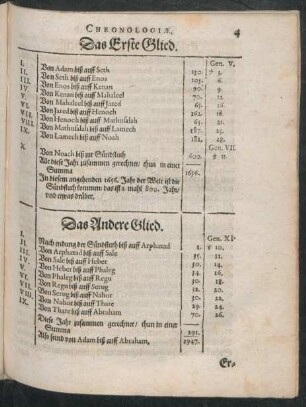 CHRONOLOGIÆ. 4
Das Erste Glied.
Gen. V.
I. Von Adam biß auff Seth 130. 3.
II. Von Seth biß auff Enos 105. 6.
III. Von Enos biß auff Kenan 90. 9.
IV. Von Kenan biß auff Mahaleel 70.
V. Von Mahaleel biß auff Jared 65.
VI. Von Jared biß auff Henoch 162.
VII. Von Henoch biß auff Methusalah 65. 21.
VIII. Von Methusalah biß auff Lamech 187. 25.
IX. Von Lamech biß auff Noah 182.
Gen. VII.
X. Von Noach biß zur Sündfluth 600. 11.
Alle diese Jahr zusammen gerechnet/ thun in einer
Summa 1656.
In diesem angehenden 1656. Jahr der Welt ist die
Sündfluth kommen das ist 2. mahl 800. Jahr/
und etwas drüber.
Das Andere Glied.
Gen. XI.
I. Nach endung der Sündfluth biß auff Arphaxad 2. v. 10.
II. Von Arphaxad biß auff Sale 35.
III. Von Sale biß auff Heber 30. 14.
IV. Von Heber biß auff Phaleg 34. 16.
V. Von Phaleg biß auff Regu 30. 18.
VI. Von Regu biß auff Serug 32. 20.
VII. Von Serug biß auff Nahor 30. 22.
VIII. Von Nahor biß auff Thare 29. 24.
IX. Von Thare biß auff Abraham 70. 26.
Diese Jahr zusammen gerechnet/ thun in einer
Summa 291.
Also seind von Adam biß auff Abraham, 1947.
Er-